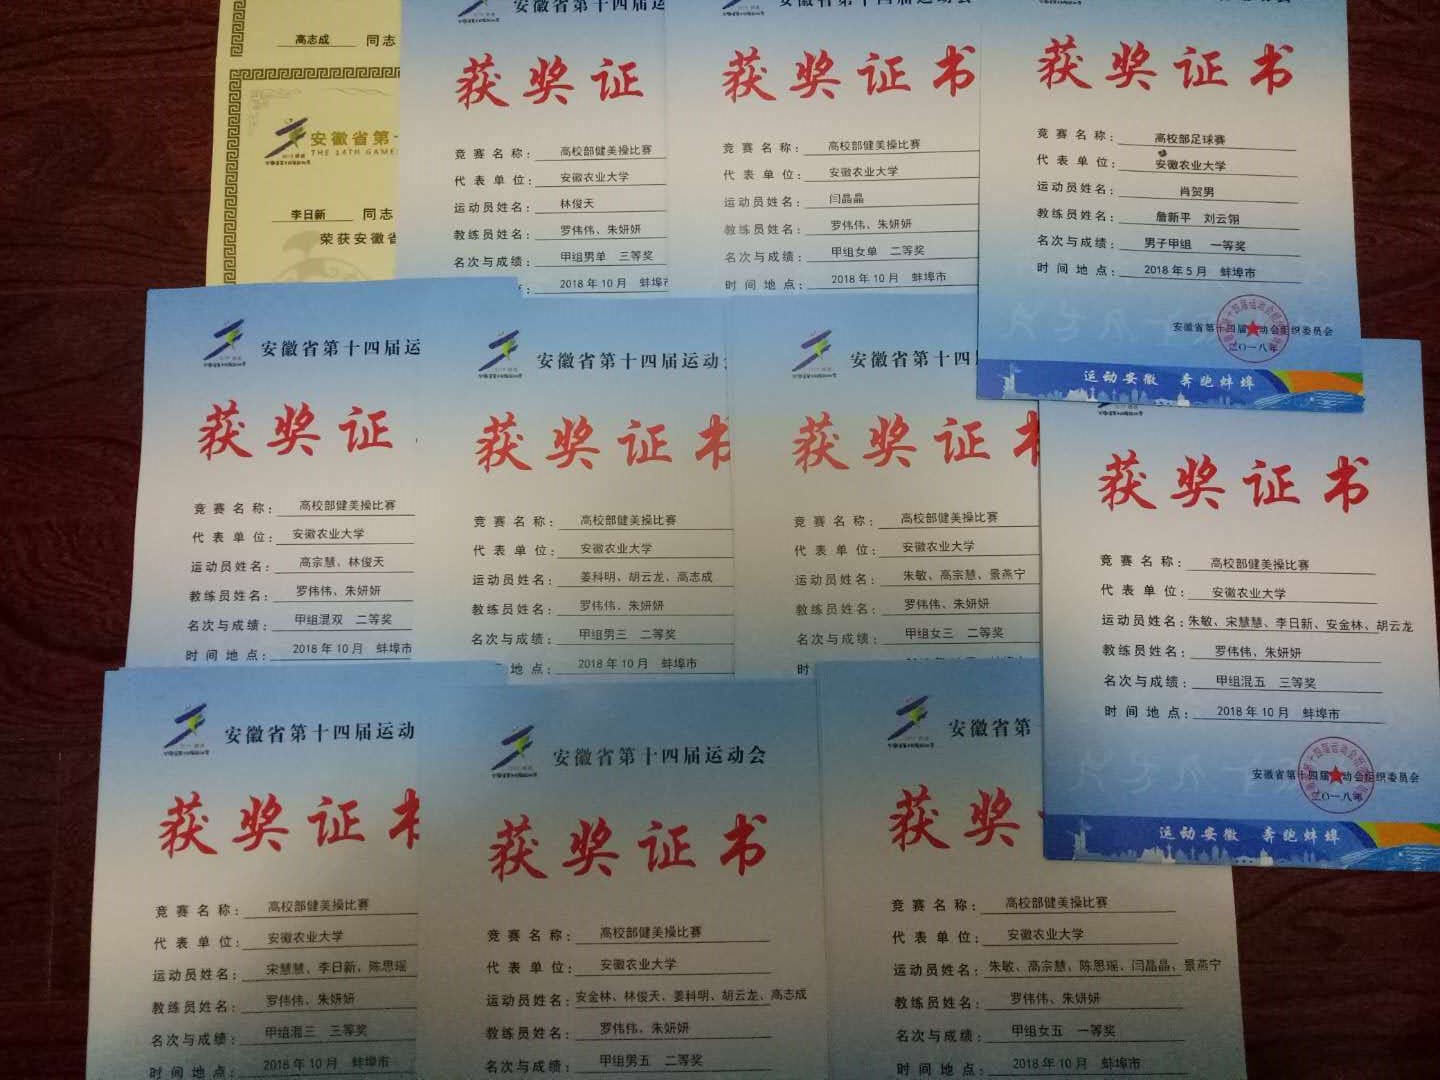 高志成 同志
安徽省第十
THE 14TH GAMES
李日新 同志
荣获安徽省
安徽省第十四届运
获奖证
竞赛名称：高校部健美操比赛
代表单位：安徽农业大学
运动员姓名：林俊天
教练员姓名：罗伟伟、朱妍妍
名次与成绩：甲组男单 三等奖
2018年10月 蚌埠市
安徽省第十四届运动会
获奖证书
竞赛名称：高校部健美操比赛
代表单位：安徽农业大学
运动员姓名：闫晶晶
教练员姓名：罗伟伟、朱妍妍
名次与成绩：甲组女单 二等奖
时间地点：2018年10月 蚌埠市
获奖证书
竞赛名称：高校部足球赛
代表单位：安徽农业大学
运动员姓名：肖贺男
教练员姓名：詹新平 刘云翎
名次与成绩：男子甲组 一等奖
时间地点：2018年5月 蚌埠市
安徽省第十四届运动会组织委员会
二〇一八年
运动安徽 奔跑蚌埠
安徽省第十四届运
获奖证
竞赛名称：高校部健美操比赛
代表单位：安徽农业大学
运动员姓名：高宗慧、林俊天
教练员姓名：罗伟伟、朱妍妍
名次与成绩：甲组混双 二等奖
时间地点：2018年10月 蚌埠市
安徽省第十四届运动
获奖证书
竞赛名称：高校部健美操比赛
代表单位：安徽农业大学
运动员姓名：姜科明、胡云龙、高志成
教练员姓名：罗伟伟、朱妍妍
名次与成绩：甲组男三 二等奖
地点：2018年10月 蚌埠市
安徽省第十四
获奖证书
竞赛名称：高校部健美操比赛
代表单位：安徽农业大学
运动员姓名：朱敏、高宗慧、景燕宁
教练员姓名：罗伟伟、朱妍妍
名次与成绩：甲组女三 二等奖
时
获奖证书
竞赛名称：高校部健美操比赛
代表单位：安徽农业大学
运动员姓名：朱敏、宋慧慧、李日新、安金林、胡云龙
教练员姓名：罗伟伟、朱妍妍
名次与成绩：甲组混五 三等奖
时间地点：2018年10月 蚌埠市
安徽省第十四届运动会组织委员会
二〇一八年
运动安徽 奔跑蚌埠
安徽省第十四届运动
获奖证书
竞赛名称：高校部健美操比赛
代表单位：安徽农业大学
运动员姓名：宋慧慧、李日新、陈思瑶
教练员姓名：罗伟伟、朱妍妍
名次与成绩：甲组混三 三等奖
时间地点：2018年10月 蚌埠市
安徽省第十四届运动会
获奖证书
竞赛名称：高校部健美操比赛
代表单位：安徽农业大学
运动员姓名：安金林、林俊天、姜科明、胡云龙、高志成
教练员姓名：罗伟伟、朱妍妍
名次与成绩：甲组男五 二等奖
安徽省第
获奖
竞赛名称：高校部健美操比赛
代表单位：安徽农业大学
运动员姓名：朱敏、高宗慧、陈思瑶、闫晶晶、景燕宁
教练员姓名：罗伟伟、朱妍妍
名次与成绩：甲组女五 一等奖
时间地点：2018年10月 蚌埠市